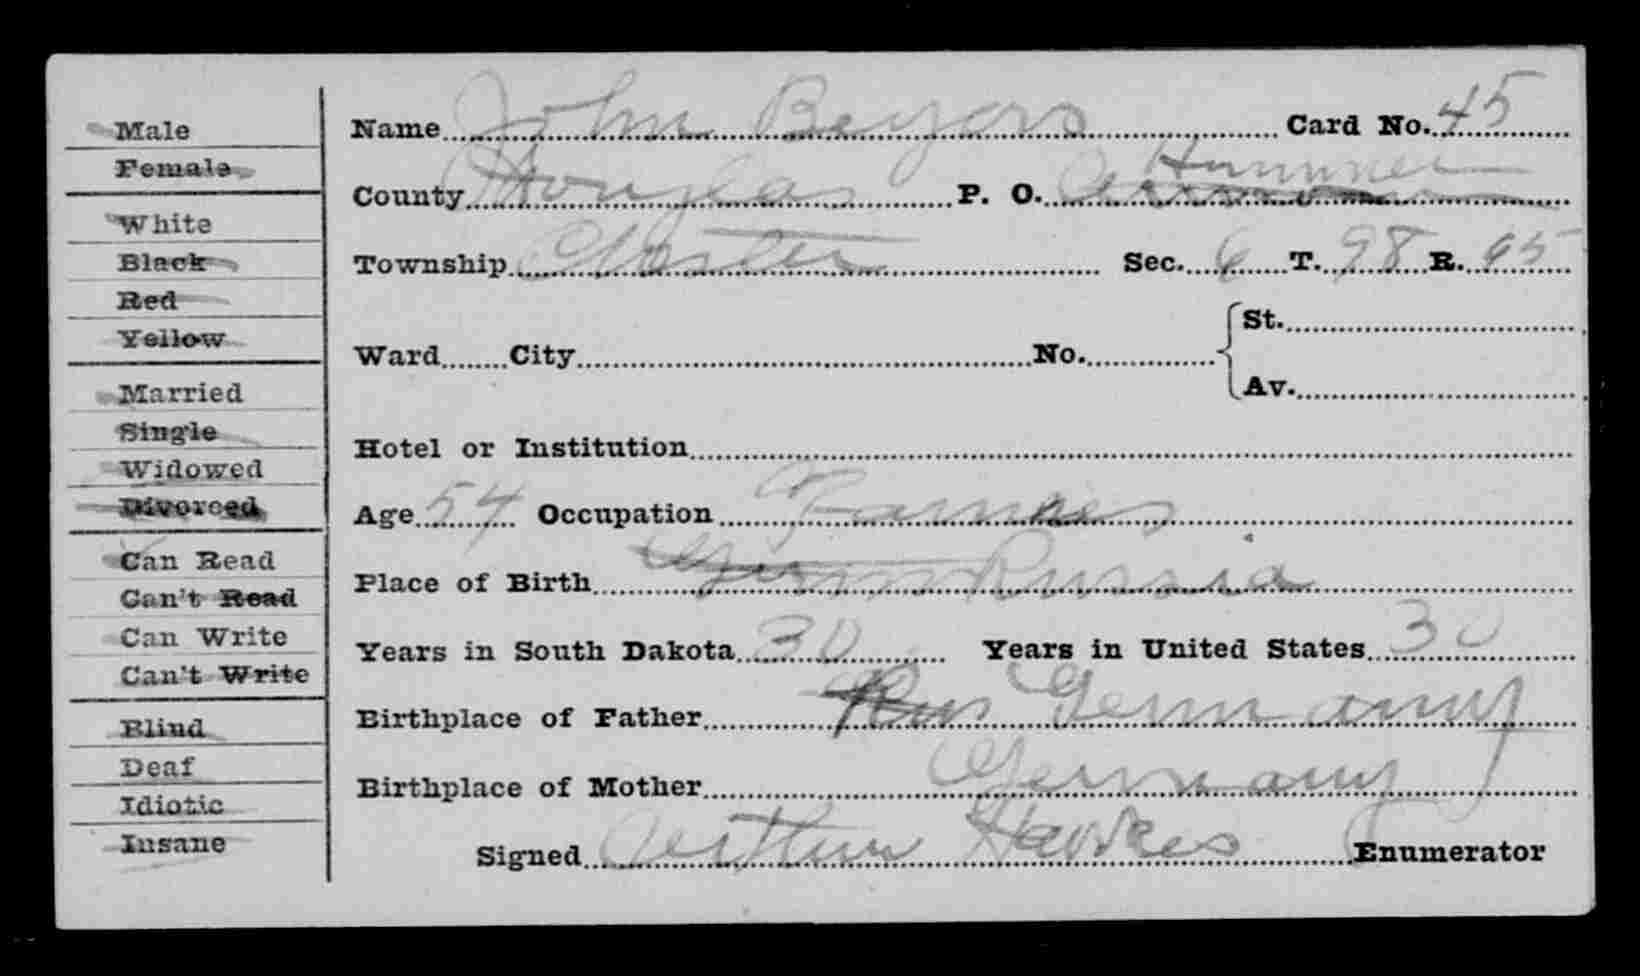 Male
Female
White
Black
Red
Yellow
Married
Single
Widowed
Divorced
Can Read
Can't Read
Can Write
Can't Write
Blind
Deaf
Idiotic
Insane
Name John Beyers Card No. 45
County Douglas P. O.
Township Chester Sec. 6 T. 98 R. 65
St.
Ward City No.
Av.
Hotel or Institution
Age 54 Occupation Farmer
Place of Birth Germ Russia
Years in South Dakota 30 Years in United States 30
Birthplace of Father Rus Germany
Birthplace of Mother Germany
Signed Arthur Hawkes Enumerator